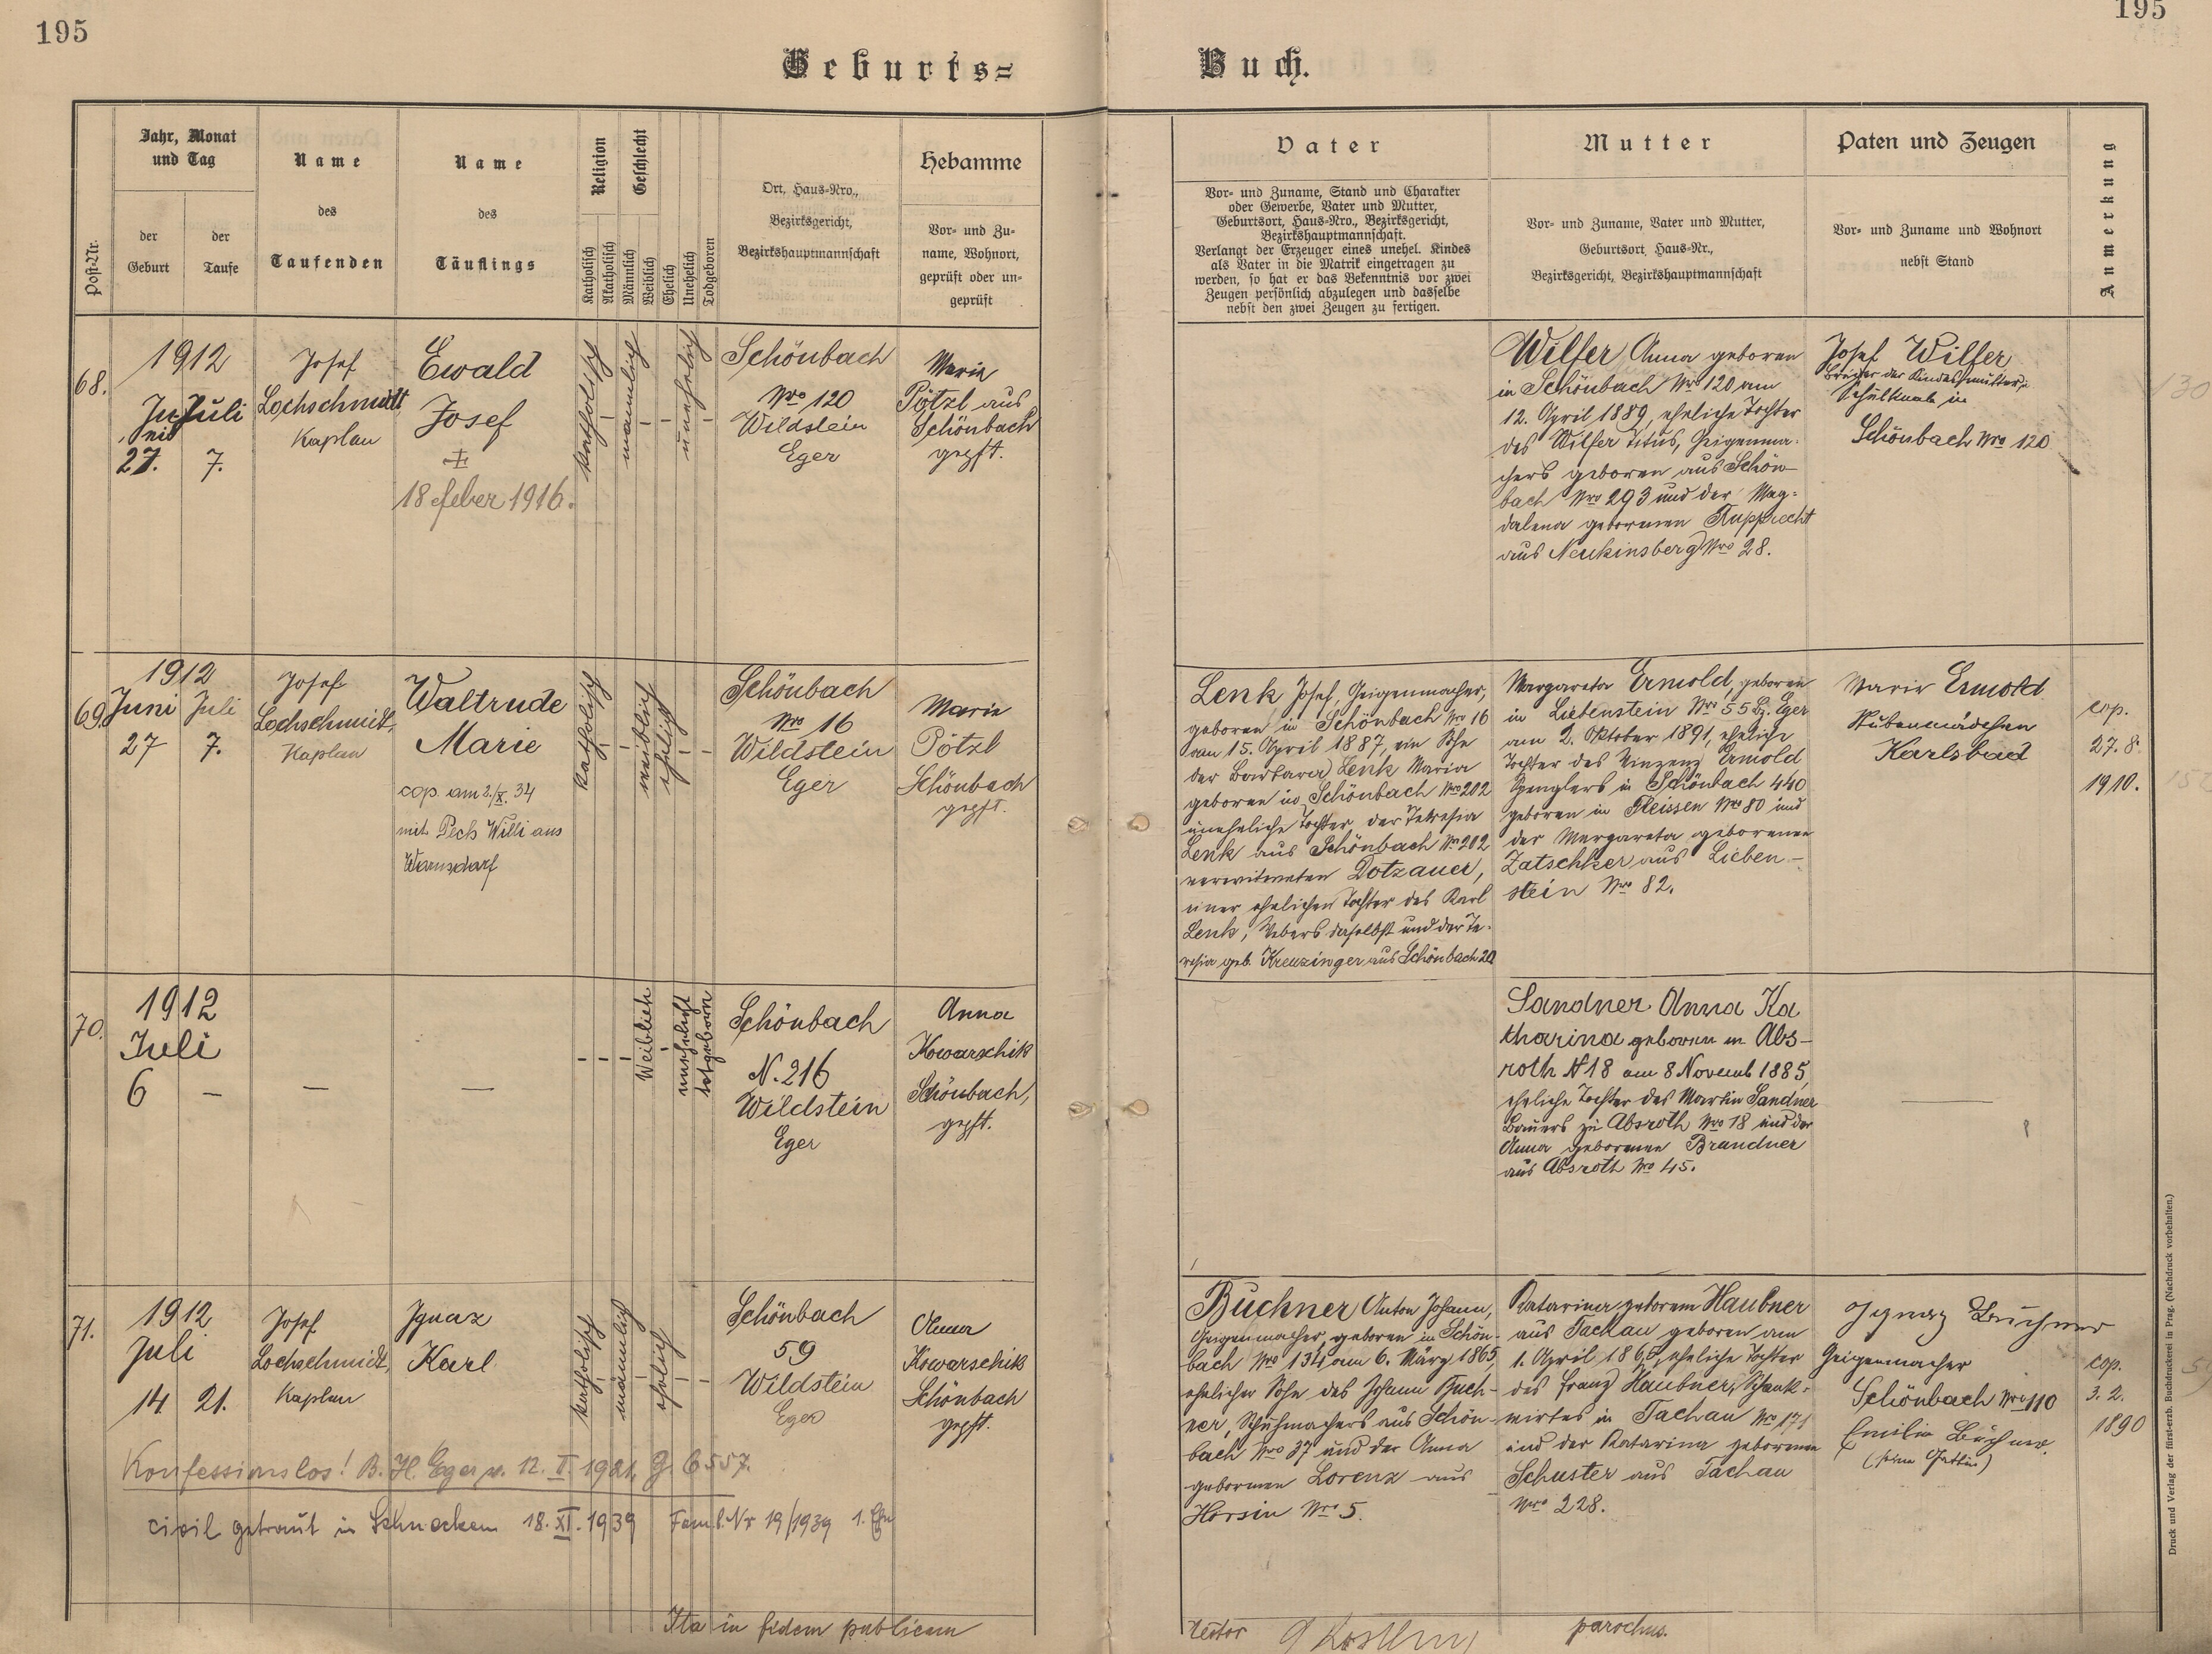 195
195
Geburts=
Buch.
Post-Nr.
Jahr, Monat
und Tag
der
Geburt
der
Taufe
Name
des
Taufenden
Name
des
Täuflings
Religion
Katholisch
Akatholisch
Geschlecht
Männlich
Weiblich
Ehelich
Unehelich
Todgeboren
Ort, Haus-Nro.,
Bezirksgericht,
Bezirkshauptmannschaft
Hebamme
Vor- und Zu-
name, Wohnort,
geprüft oder un-
geprüft
Vater
Vor- und Zuname, Stand und Charakter
oder Gewerbe, Vater und Mutter,
Geburtsort, Haus-Nro., Bezirksgericht,
Bezirkshauptmannschaft.
Verlangt der Erzeuger eines unehel. Kindes
als Vater in die Matrik eingetragen zu
werden, so hat er das Bekenntnis vor zwei
Zeugen persönlich abzulegen und dasselbe
nebst den zwei Zeugen zu fertigen.
Mutter
Vor- und Zuname, Vater und Mutter,
Geburtsort, Haus-Nr.,
Bezirksgericht, Bezirkshauptmannschaft
Paten und Zeugen
Vor- und Zuname und Wohnort
nebst Stand
Anmerkung
68.
1912
Juni
27.
Juli
7.
Josef
Lochschmidt
Kaplan
Ewald
Josef
18 feber 1916.
katholisch
männlich
unehelich
Schönbach
Nro 120
Wildstein
Eger
Marie
Pötzl aus
Schönbach
gepft.
Wilfer Anna geboren
in Schönbach Nro 120 am
12. April 1889, eheliche Tochter
des Wilfer Titus, Geigenma-
chers geboren aus Schön-
bach Nro 293 und der Mag-
dalena geborenen Rupprecht
aus Neukinsberg Nro 28.
Josef Wilfer
Bruder der Kindesmutter,
Schulknabe in
Schönbach Nro 120
130
69.
1912
Juni
27
Juli
7.
Josef
Lochschmidt,
Kaplan
Waltrude
Marie
cop. am 2./X. 34
mit Pech Willi aus
Warnsdorf
katholisch
weiblich
ehelich
Schönbach
Nro 16
Wildstein
Eger
Marie
Pötzl
Schönbach
gepft.
Lenk Josef, Geigenmacher,
geboren in Schönbach Nro 16
am 15. April 1887, ein Sohn
der Barbara Lenk Maria
geboren in Schönbach Nro 202
uneheliche Tochter der Teresia
Lenk aus Schönbach Nro 202
verwitweten Dotzauer,
einer ehelichen Tochter des Karl
Lenk, Webers daselbst und der Te-
resia geb. Kreuzinger aus Schönbach 20
Margareta Ermold, geboren
in Liebenstein Nro 55 Bz. Eger
am 2. Oktober 1891, eheliche
Tochter des Vinzenz Ermold
Spenglers in Schönbach 440
geboren in Fleissen Nro 80 und
der Margareta geborenen
Zatschker aus Lieben-
stein Nro 82.
Marie Ermold
Stubenmädchen
Karlsbad
cop.
27. 8.
1910.
70.
1912
Juli
6
–
—
—
Weiblich
unehelich
totgeboren
Schönbach
N. 216
Wildstein
Eger
Anna
Kowarschik
Schönbach,
gepft.
Sandner Anna Ka
tharina geboren in Abs-
roth N 18 am 8 Novemb 1885,
eheliche Tochter des Martin Sandner
Bauers in Absroth Nro 18 und der
Anna geborenen Brandner
aus Absroth Nro 45.
71.
1912
Juli
14. 21.
Josef
Lochschmidt,
Kaplan
Ignaz
Karl
katholisch
männlich
ehelich
Schönbach
59
Wildstein
Eger
Anna
Kowarschik
Schönbach
gepft.
Buchner Anton Johann,
Geigenmacher, geboren in Schön-
bach Nro 134 am 6. März 1865,
ehelicher Sohn des Johann Buch-
ner, Schuhmachers aus Schön-
bach Nro 37 und der Anna
geborenen Lorenz aus
Horsin Nro 5.
Katarina geborene Haubner
aus Tachau geboren am
1. April 1865, eheliche Tochter
des Franz Haubner, Schank-
wirtes in Tachau Nro 171
und der Katarina geborenen
Schuster aus Tachau
Nro 228.
Ignaz Buchner
Geigenmacher
Schönbach Nro 110
Emilie Buchner
(seine Gattin)
cop.
3. 2.
1890
Konfessionslos! B. H. Eger v. 12. I. 1921, G. 6557.
civil getraut in 18. XI. 1939 Nr 19/1939
Ita in fidem publicam
testor
parochus.
Druck und Verlag der fürst-erzb. Buchdruckerei in Prag. (Nachdruck vorbehalten.)